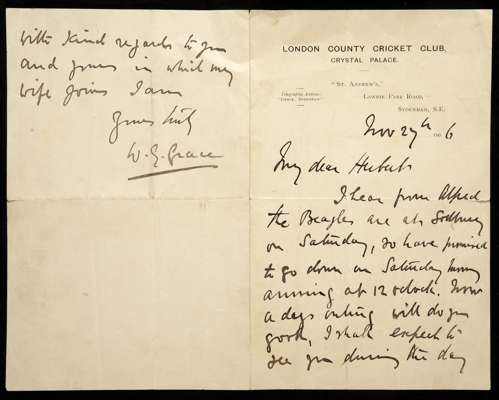 LONDON COUNTY CRICKET CLUB,
CRYSTAL PALACE.
"ST. ANDREW'S,"
LAWRIE PARK ROAD,
SYDENHAM, S.E.
Telegraphic Address:
"GRACE, SYDENHAM."
Nov 27th 06
My dear Herbert
I hear from Alfred
the Beagles are at Sodbury
on Saturday, so have promised
to go down on Saturday
arriving at 12 oclock. Now
a days outing will do you
good, I shall expect to
see you during the day
with kind regards to you
and yours in which my
wife joins I am
Yours truly
W. G. Grace